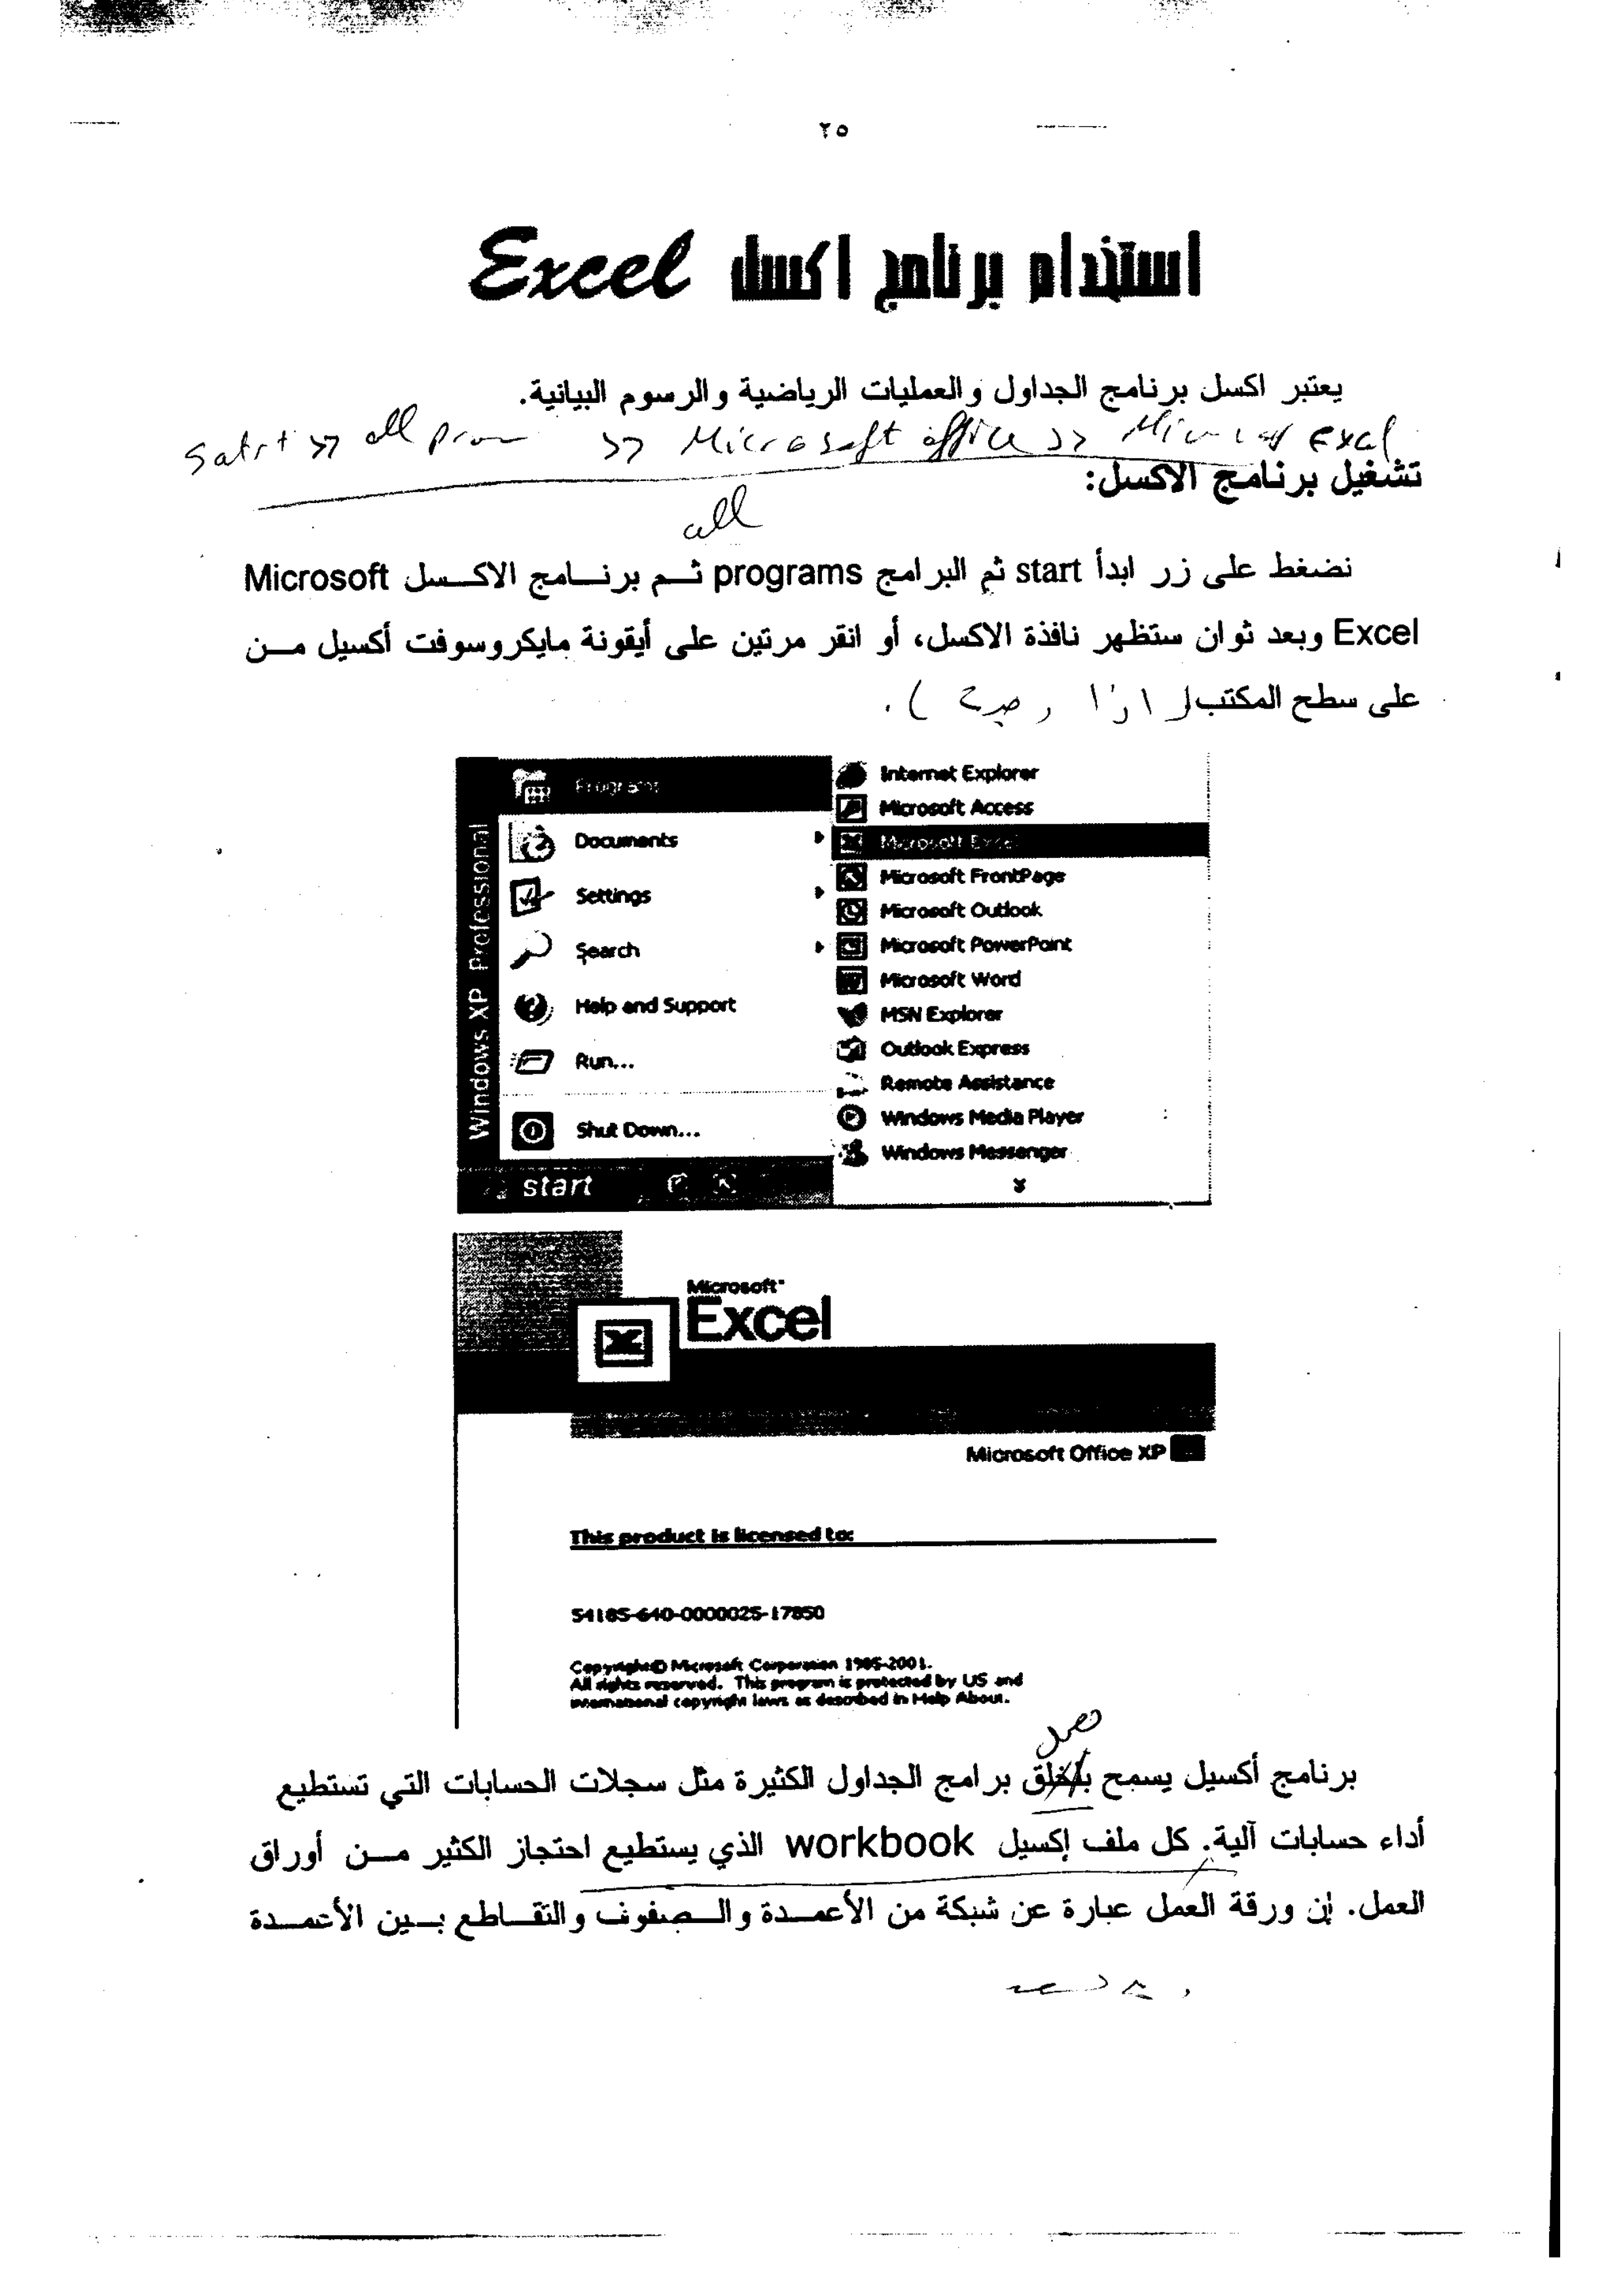 ٢٥
استخدام برنامج اكسل Excel
يعتبر اكسل برنامج الجداول والعمليات الرياضية والرسوم البيانية.
Satrt >> all >> Microsoft office >> Exal
تشغيل برنامج الاكسل:
all
نضغط على زر ابدأ start ثم البرامج programs ثم برنامج الاكسل Microsoft
Excel وبعد ثوان ستظهر نافذة الاكسل، أو انقر مرتين على أيقونة مايكروسوفت أكسيل من
على سطح المكتب ( اذا وجدت ).
Windows XP Professional
Programs
Documents
Settings
Search
Help and Support
Run...
Shut Down...
start
Internet Explorer
Microsoft Access
Microsoft Excel
Microsoft FrontPage
Microsoft Outlook
Microsoft PowerPoint
Microsoft Word
MSN Explorer
Outlook Express
Remote Assistance
Windows Media Player
Windows Messenger
Microsoft
Excel
Microsoft Office XP
This product is licensed to:
54185-640-0000025-17850
Copyright© Microsoft Corporation 1985-2001.
All rights reserved. This program is protected by US and
international copyright laws as described in Help About.
برنامج أكسيل يسمح بخلق برامج الجداول الكثيرة مثل سجلات الحسابات التي تستطيع
أداء حسابات آلية. كل ملف إكسيل workbook الذي يستطيع احتجاز الكثير من أوراق
العمل. إن ورقة العمل عبارة عن شبكة من الأعمدة والصفوف والتقاطع بين الأعمدة